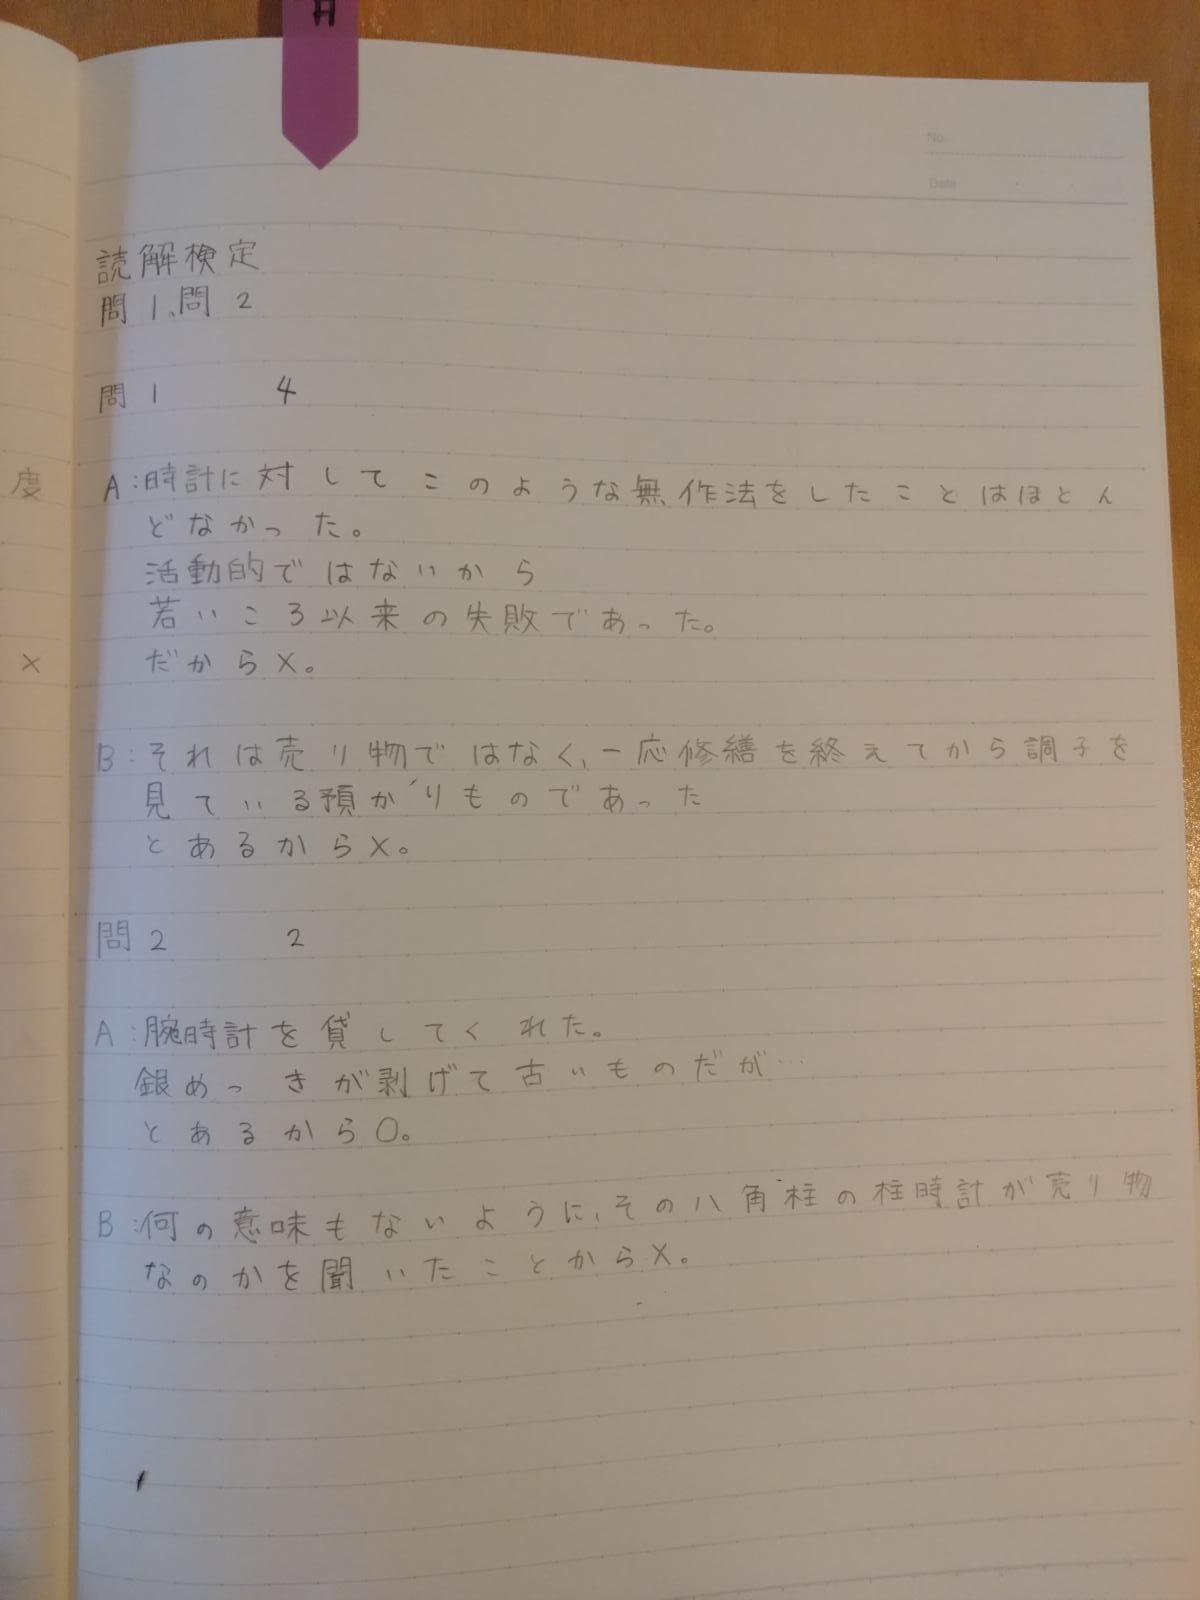 月
No.
Date
読解検定
問1、問2
問1 4
度
A:時計に対してこのような無作法をしたことはほとん
どなかった。
活動的ではないから
若いころ以来の失敗であった。
×
だから×。
B:それは売り物ではなく、一応修繕を終えてから調子を
見ている預かりものであった
とあるから×。
問2 2
A:腕時計を貸してくれた。
銀めっきが剥げて古いものだが…
とあるから○。
B:何の意味もないように、その八角柱の柱時計が売り物
なのかを聞いたことから×。